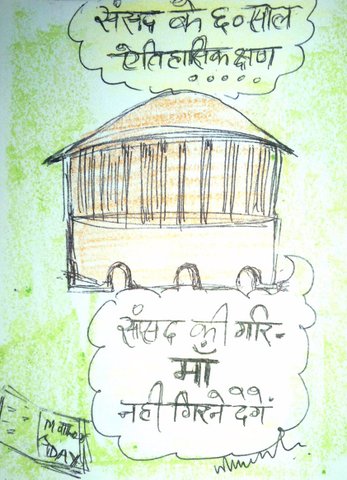 संसद के ६० साल
ऐतिहासिक क्षण
.....
सांसद की गरि-
माँ
नही गिरने देगें
Mother
DAY